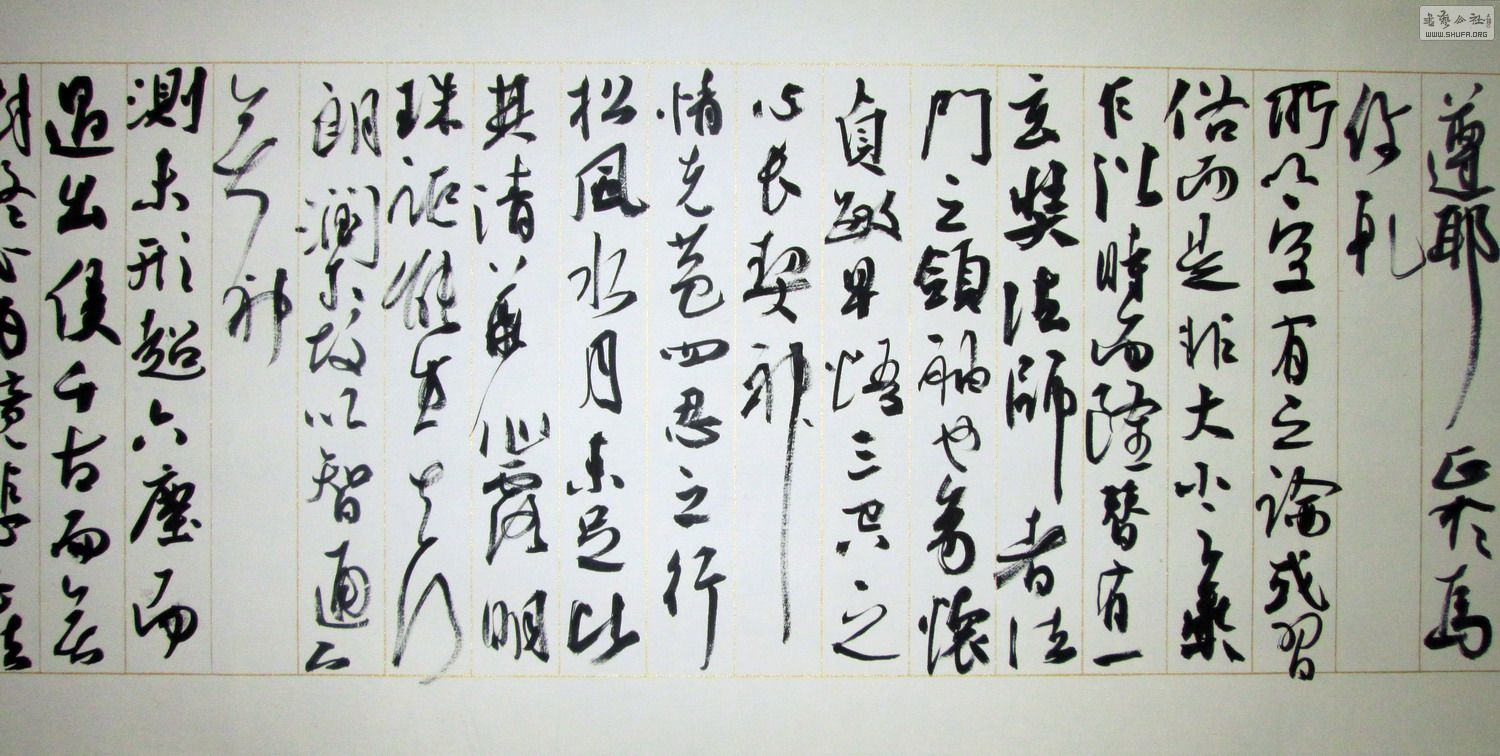 遵耶正於焉
紛糺
所以空有之論或習
俗而是非大小之乘
乍沿時而隆替有一
玄奘法師者法
門之領袖也幼懷
貞敏早悟三空之
心長契神
情先苞四忍之行
松風水月未足比
其清華仙露明
珠詎能方其
朗潤故以智通
無累神
測未形超六塵而
迥出隻千古而無
對凝心內境悲正法
書藝公社
WWW.SHUFA.ORG